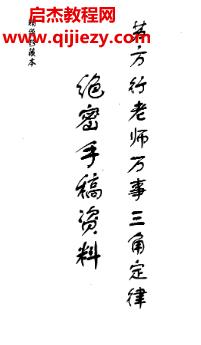 启杰教程网
www.qijiezy.com
苏方行老师万事三角定律
绝密手稿资料
藏本